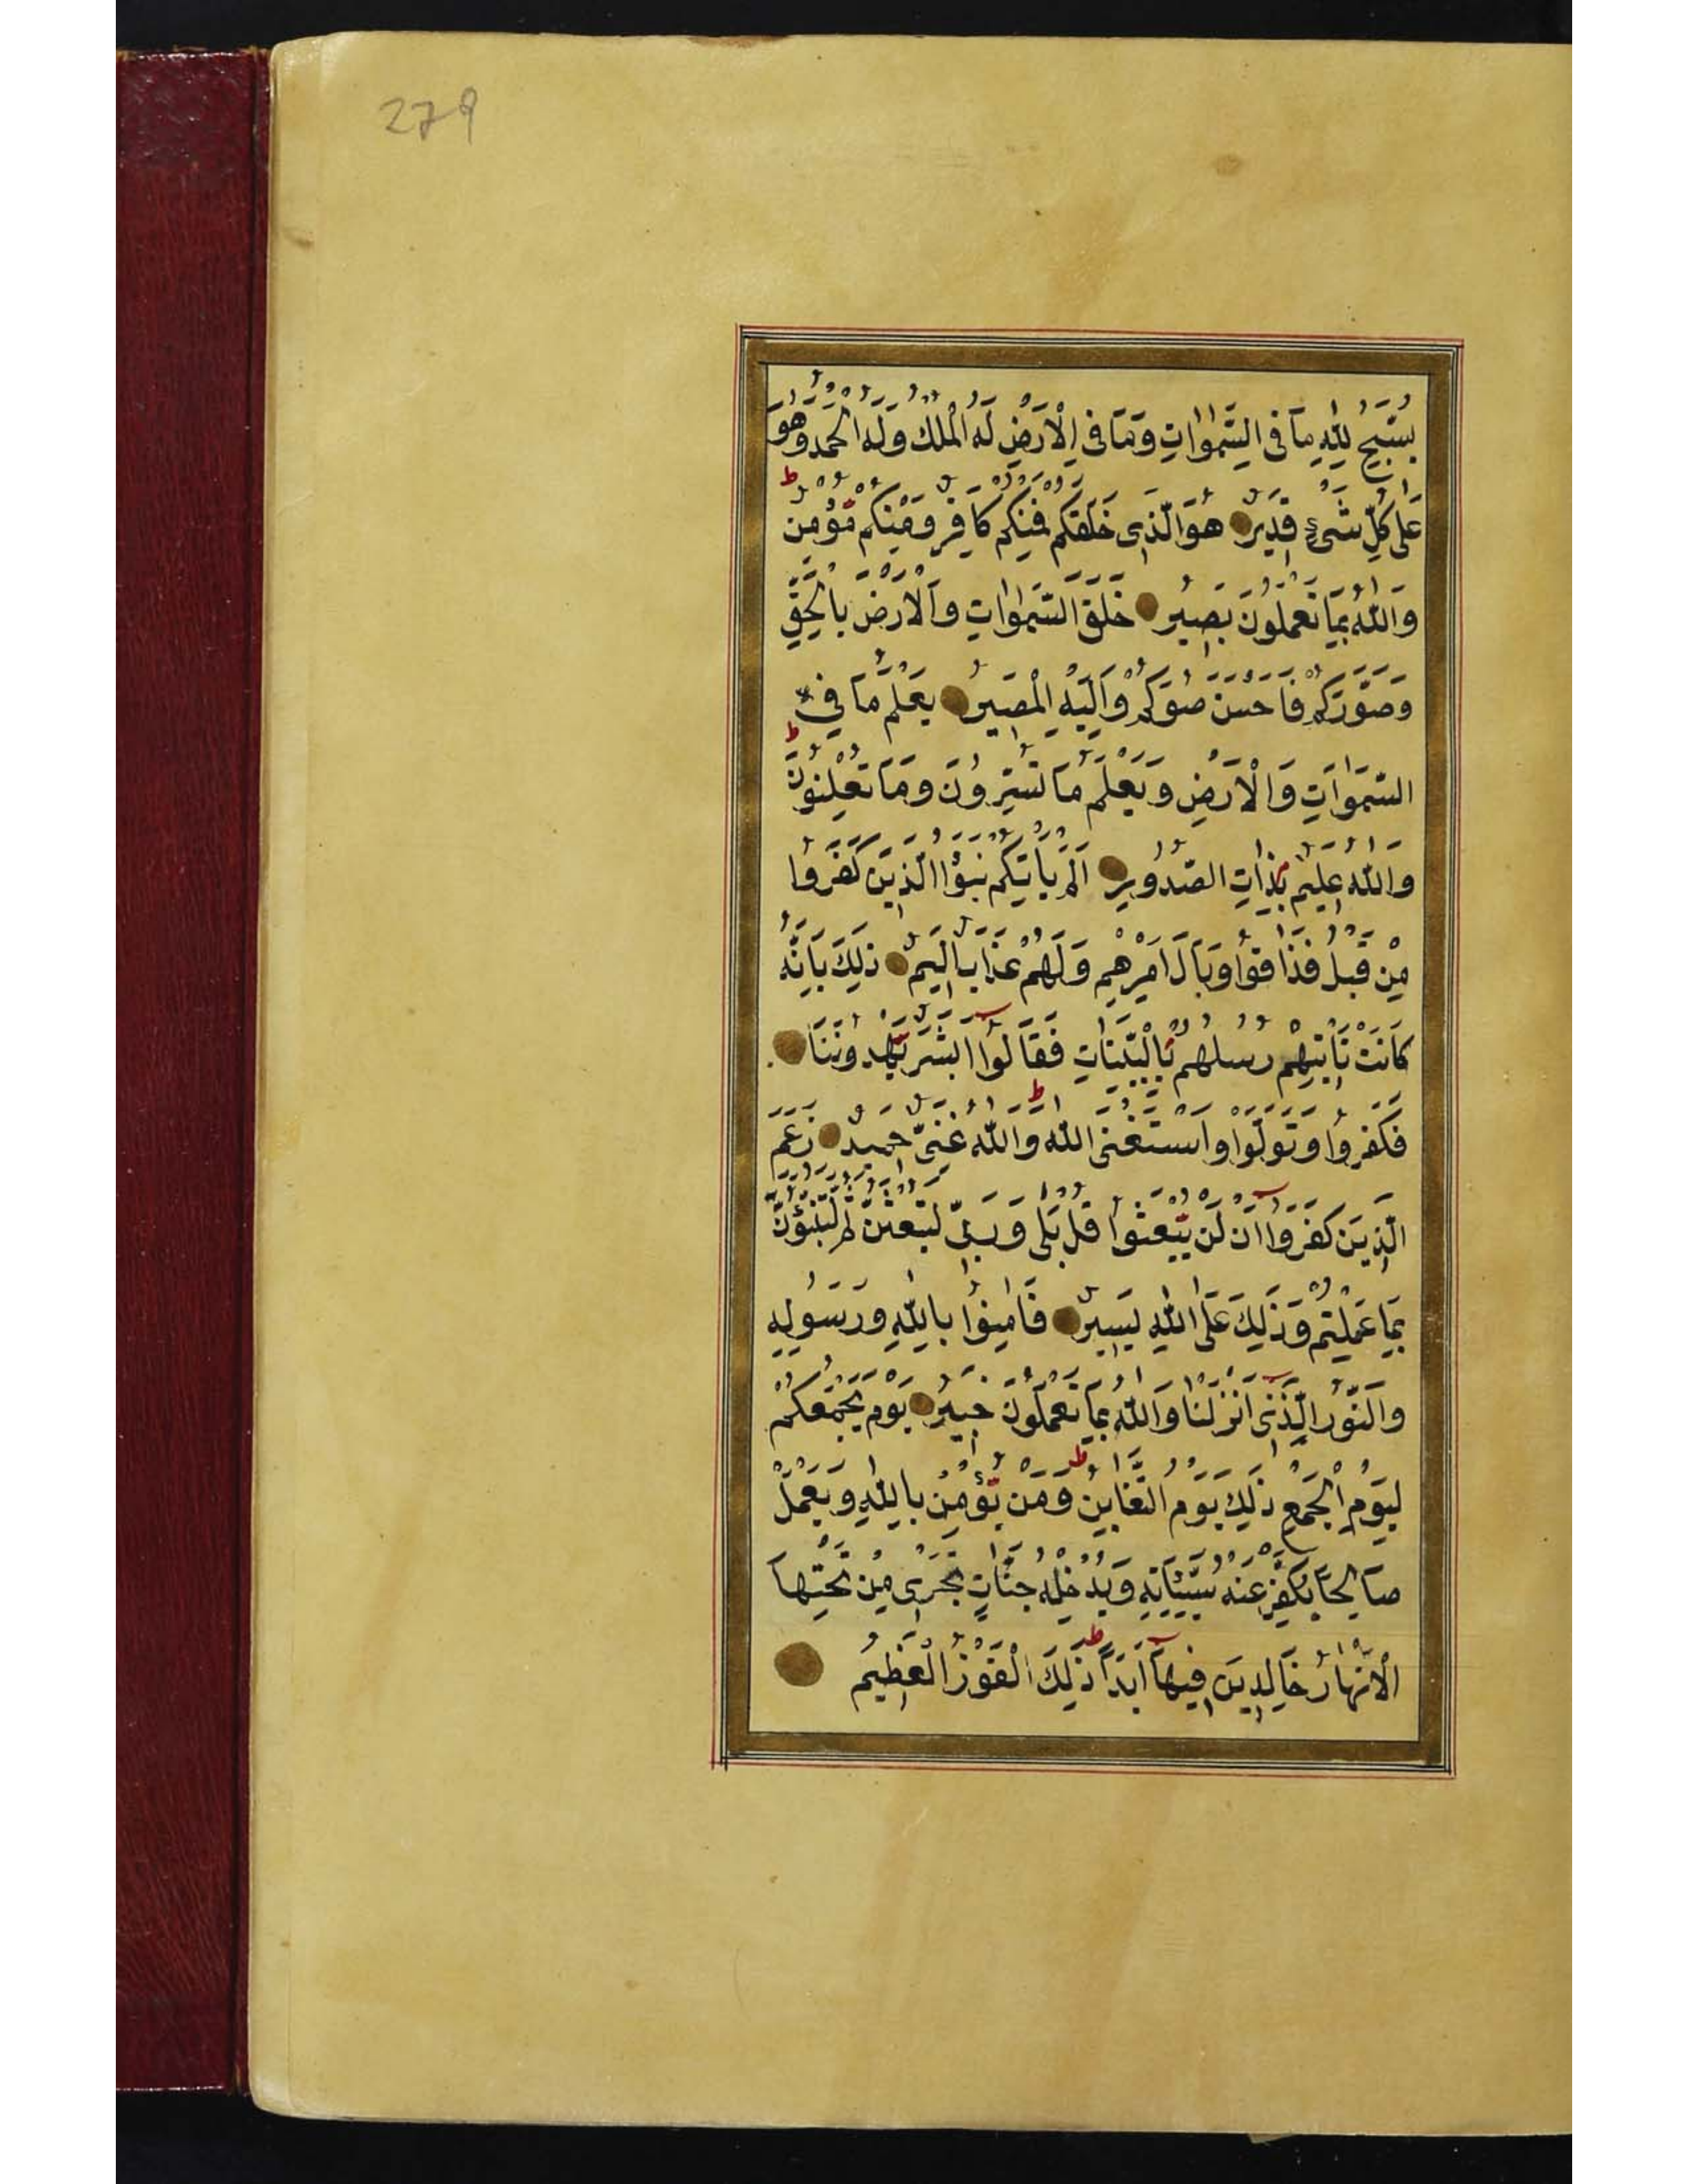 279
يُسَبِّحُ لِلّٰهِ مَا فِى السَّمٰوَاتِ وَمَا فِى الْاَرْضِ لَهُ الْمُلْكُ وَلَهُ الْحَمْدُ وَهُوَ
عَلٰى كُلِّ شَىْءٍ قَدِيرٌ هُوَ الَّذِى خَلَقَكُمْ فَمِنْكُمْ كَافِرٌ وَمِنْكُمْ مُؤْمِنٌ ط
وَاللّٰهُ بِمَا تَعْمَلُونَ بَصِيرٌ خَلَقَ السَّمٰوَاتِ وَالْاَرْضَ بِالْحَقِّ
وَصَوَّرَكُمْ فَاَحْسَنَ صُوَرَكُمْ وَاِلَيْهِ الْمَصِيرُ يَعْلَمُ مَا فِى
السَّمٰوَاتِ وَالْاَرْضِ وَيَعْلَمُ مَا تُسِرُّونَ وَمَا تُعْلِنُونَ ط
وَاللّٰهُ عَلِيمٌ بِذَاتِ الصُّدُورِ اَلَمْ يَأْتِكُمْ نَبَؤُا الَّذِينَ كَفَرُوا
مِنْ قَبْلُ فَذَاقُوا وَبَالَ اَمْرِهِمْ وَلَهُمْ عَذَابٌ اَلِيمٌ ذٰلِكَ بِاَنَّهُ
كَانَتْ تَأْتِيهِمْ رُسُلُهُمْ بِالْبَيِّنَاتِ فَقَالُوا اَبَشَرٌ يَهْدُونَنَا
فَكَفَرُوا وَتَوَلَّوْا وَاسْتَغْنَى اللّٰهُ ط وَاللّٰهُ غَنِىٌّ حَمِيدٌ زَعَمَ
الَّذِينَ كَفَرُوا اَنْ لَنْ يُبْعَثُوا قُلْ بَلٰى وَرَبِّى لَتُبْعَثُنَّ ثُمَّ لَتُنَبَّؤُنَّ
بِمَا عَمِلْتُمْ وَذٰلِكَ عَلَى اللّٰهِ يَسِيرٌ فَاٰمِنُوا بِاللّٰهِ وَرَسُولِهِ
وَالنُّورِ الَّذِى اَنْزَلْنَا وَاللّٰهُ بِمَا تَعْمَلُونَ خَبِيرٌ يَوْمَ يَجْمَعُكُمْ
لِيَوْمِ الْجَمْعِ ذٰلِكَ يَوْمُ التَّغَابُنِ ط وَمَنْ يُؤْمِنْ بِاللّٰهِ وَيَعْمَلْ
صَالِحًا يُكَفِّرْ عَنْهُ سَيِّئَاتِهِ وَيُدْخِلْهُ جَنَّاتٍ تَجْرِى مِنْ تَحْتِهَا
الْاَنْهَارُ خَالِدِينَ فِيهَا اَبَدًا ط ذٰلِكَ الْفَوْزُ الْعَظِيمُ